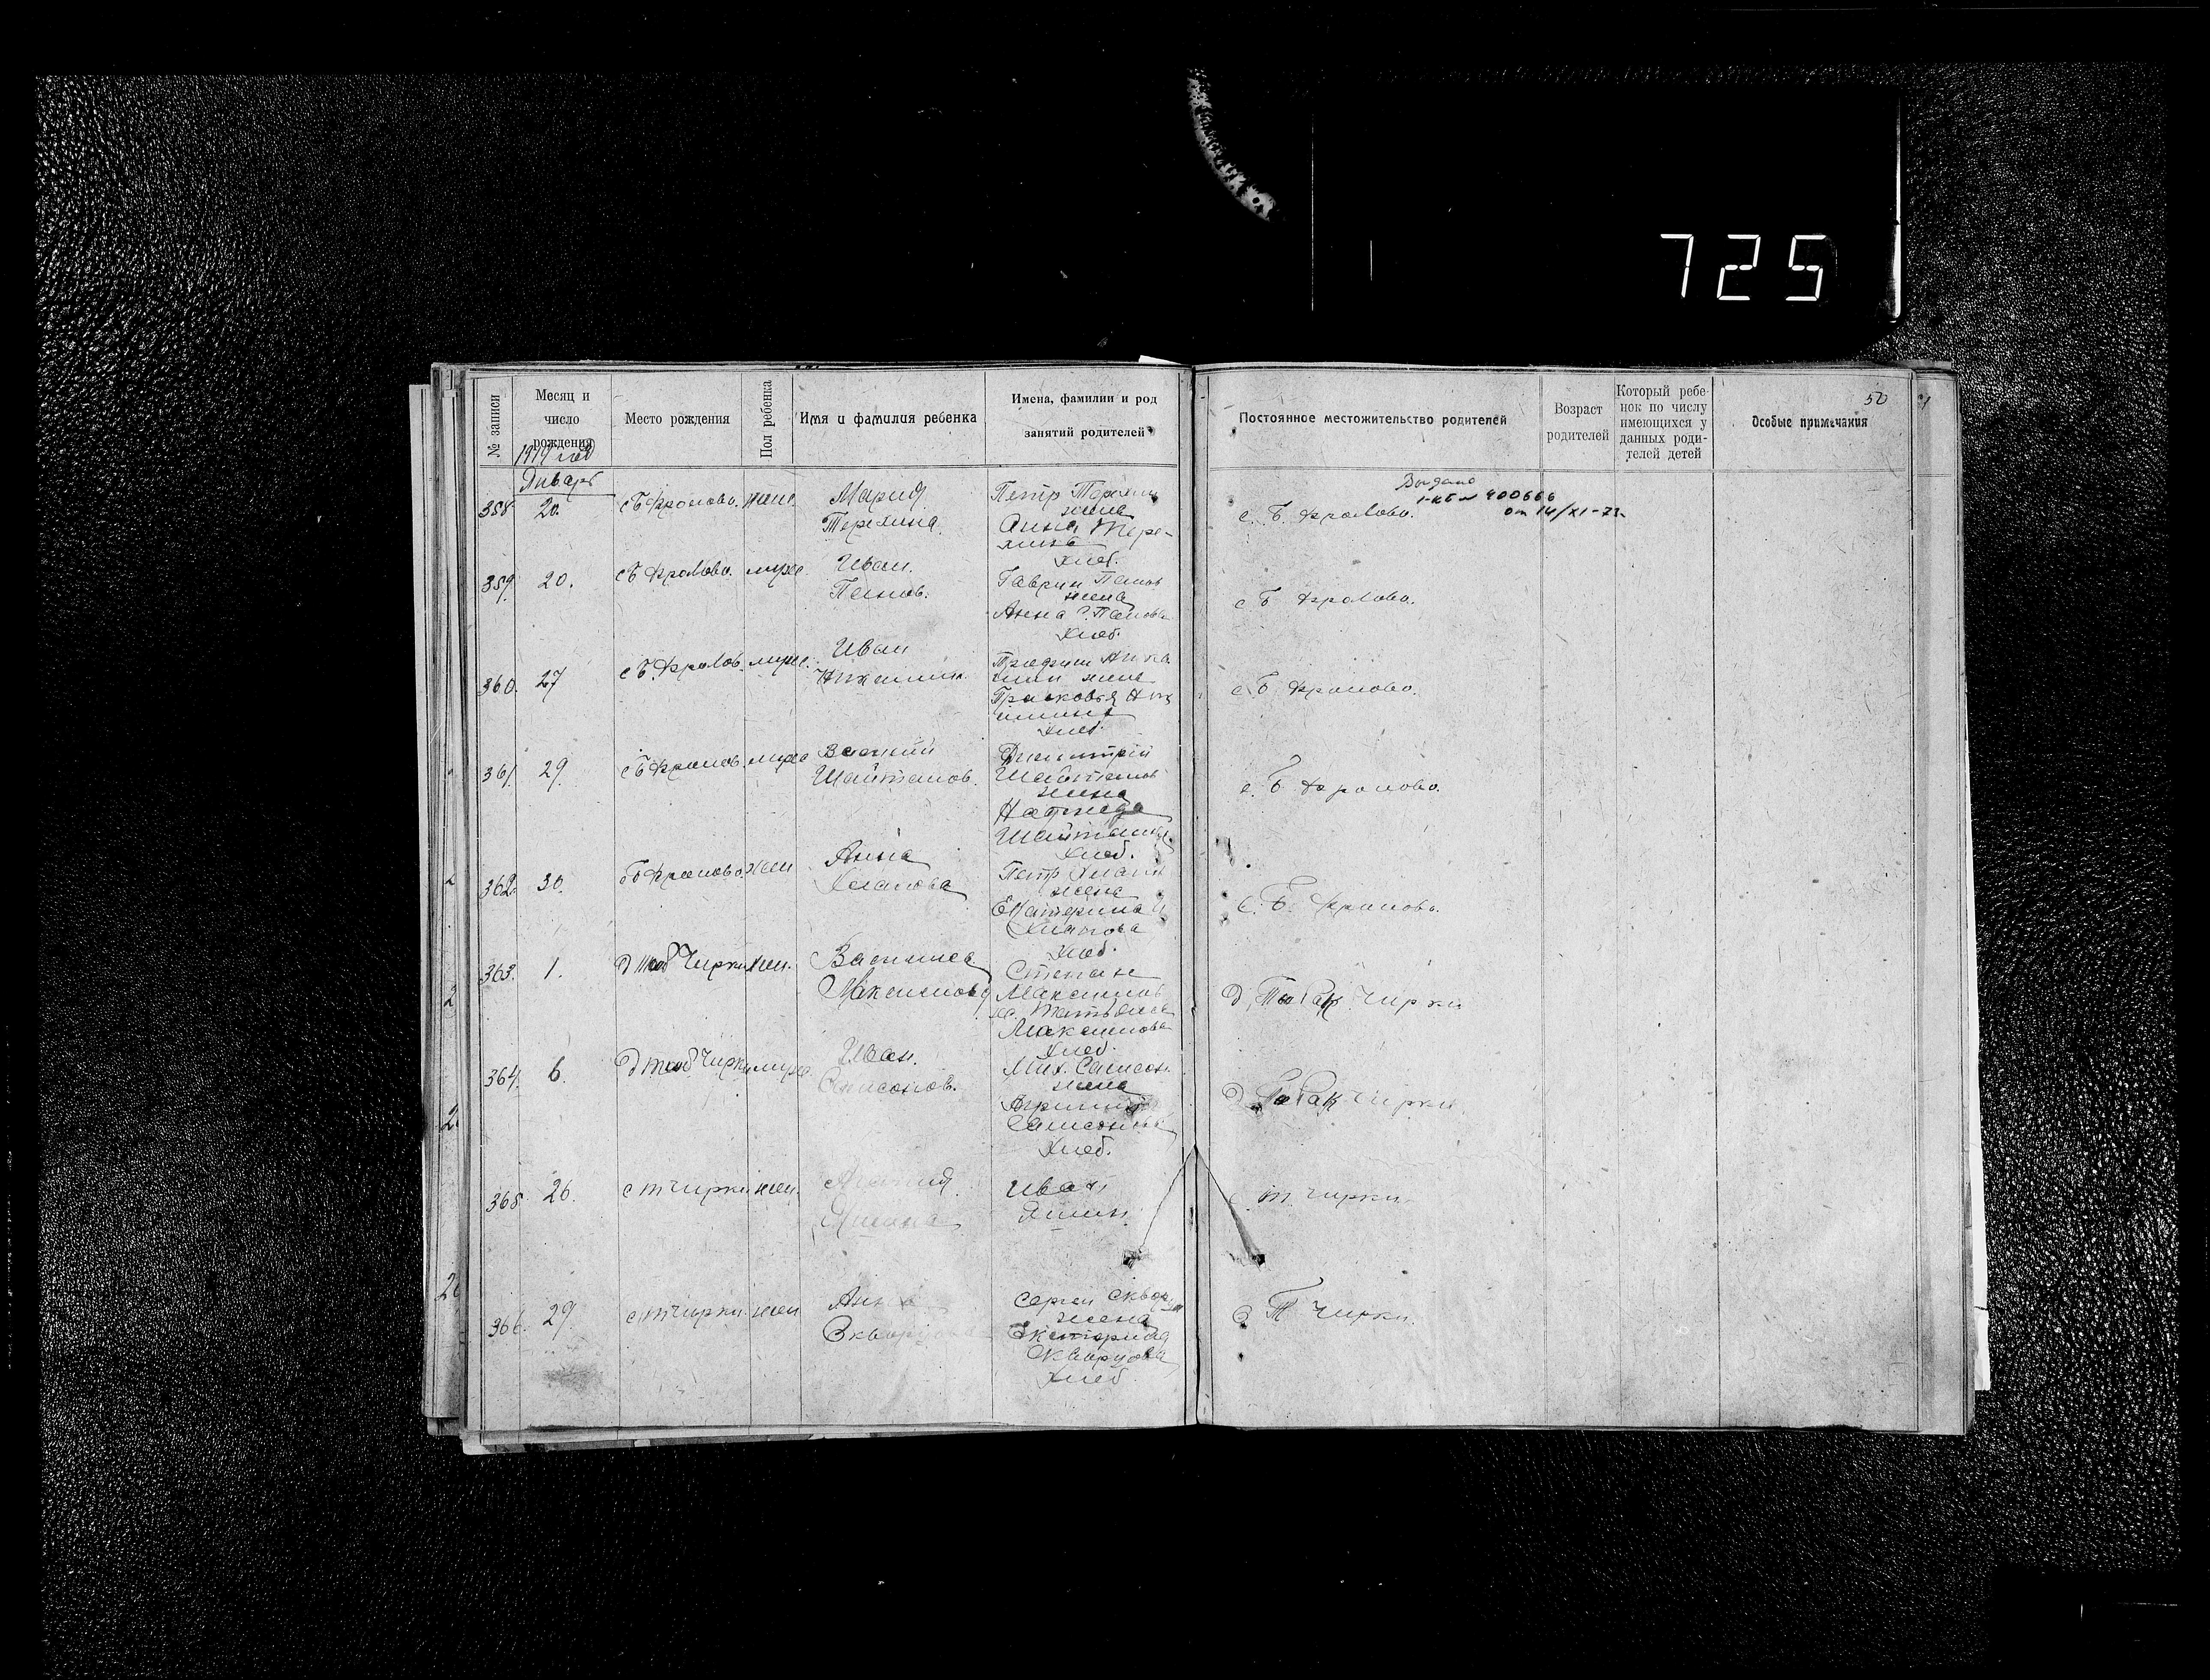 725
№ записи
Месяц и число рождения
Место рождения
Пол ребенка
Имя и фамилия ребенка
Имена, фамилии и род занятий родителей
Постоянное местожительство родителей
Возраст родителей
Который ребенок по числу имеющихся у данных родителей детей
Особые примечания
50
1919 год
Январь
358
20.
с Б Фролово.
жен.
Мария
Терехина.
Петр
жена
Анна Тере-
хина
Хлеб.
с. Б. Фролово.
Выдано
400666
от 14/XI-73
359.
20.
с Б Фролово.
муж.
Иван.
Панов.
Гаврил Панов
жена
Анна С. Панова
Хлеб.
с Б Фролово.
360.
27
с Б. Фролов.
муж.
Иван
жена
Прасковья
Хлеб.
с. Б Фролово.
361.
29.
с Б Фролов.
муж
Василий
Шайтанов.
Димитрий
Шайтанов
жена
Надежда
Шайтанова
Хлеб.
с. Б Фролово.
362.
30.
с Б Фролово
жен
Анна
Хлапова
Петр
жена
Екатерина
Хлапова
Хлеб.
с. Б. Фролово.
363.
1.
д Таб Чирки
жен.
Василиса
Максимова
Степан
Максимов
Татьяна
Максимова
Хлеб.
д. Табак Чирки
364.
6.
д Таб Чирки
муж.
Иван.
Самсонов.
Мих. Самсон.
жена
Самсонова
Хлеб.
Д Табак Чирки
365
26.
с т Чирки
жен.
Яшина
Иван
Яшин.
с т. Чирки
366.
29.
с т Чирки.
жен
Анна
Скворцова
Сергей
жена
Екатерина
Скворцова
Хлеб
С Т Чирки.